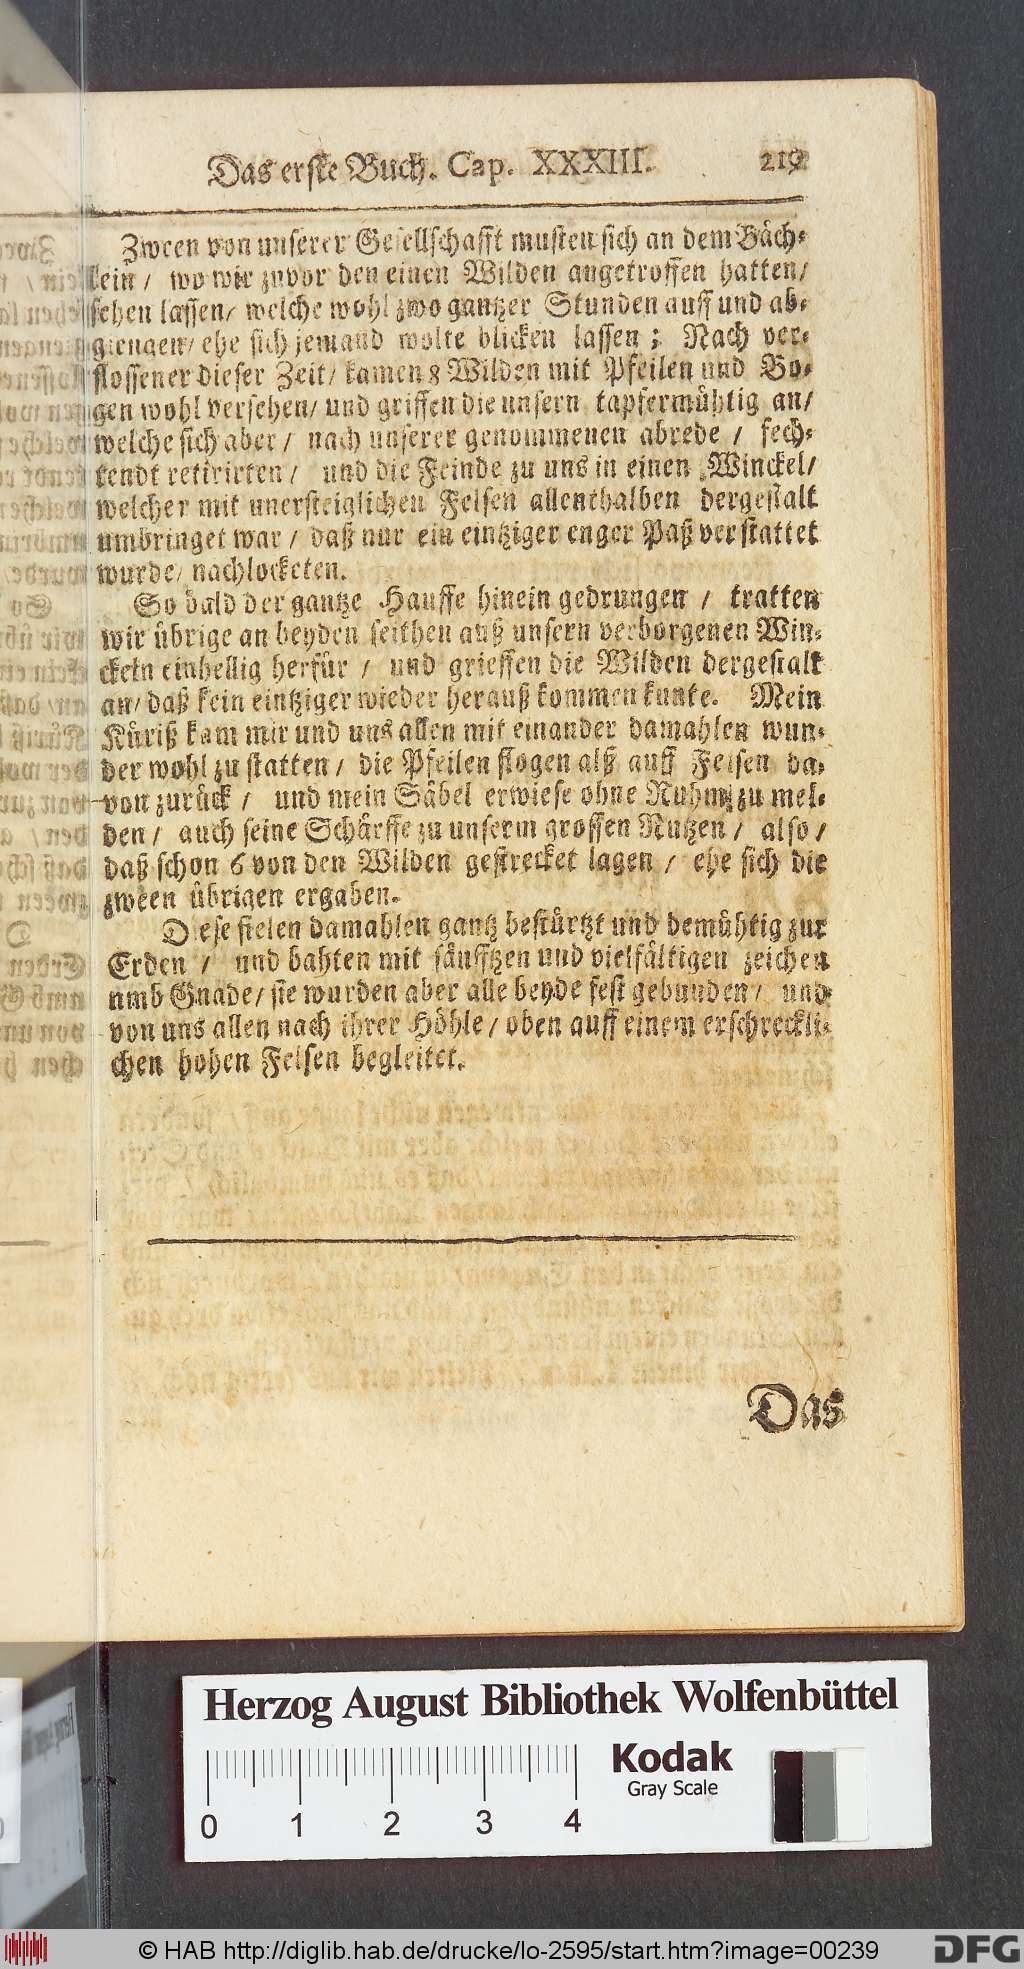 Das erste Buch. Cap. XXXIII. 219
Zween von unserer Gesellschafft musten sich an dem Bäch-
lein / wo wir zuvor den einen Wilden angetroffen hatten /
sehen lassen / welche wohl zwo gantzer Stunden auff und ab-
giengen / ehe sich jemand wolte blicken lassen ; Nach ver-
flossener dieser Zeit / kamen 8 Wilden mit Pfeilen und Bo-
gen wohl versehen / und griffen die unsern tapfermühtig an /
welche sich aber / nach unserer genommenen abrede / fech-
tendt retirirten / und die Feinde zu uns in einen Winckel /
welcher mit unersteiglichen Felsen allenthalben dergestalt
umbringet war / daß nur ein eintziger enger Paß verstattet
wurde / nachlocketen.
So bald der gantze Hauffe hinein gedrungen / tratten
wir übrige an beyden seithen auß unsern verborgenen Win-
ckeln einhellig herfür / und grieffen die Wilden dergestalt
an / daß kein eintziger wieder herauß kommen kunte. Mein
Küriß kam mir und uns allen mit einander damahlen wun-
der wohl zu statten / die Pfeilen flogen alß auff Felsen da-
von zurück / und mein Säbel erwiese ohne Ruhm zu mel-
den / auch seine Schärffe zu unserm grossen Nutzen / also /
daß schon 6 von den Wilden gestrecket lagen / ehe sich die
zween übrigen ergaben.
Diese fielen damahlen gantz bestürtzt und demühtig zur
Erden / und bahten mit säufftzen und vielfältigen zeichen
umb Gnade / sie wurden aber alle beyde fest gebunden / und
von uns allen nach ihrer Höhle / oben auff einem erschreckli-
chen hohen Felsen begleitet.
Das
Herzog August Bibliothek Wolfenbüttel
Kodak
Gray Scale
0 1 2 3 4
© HAB http://diglib.hab.de/drucke/lo-2595/start.htm?image=00239
DFG